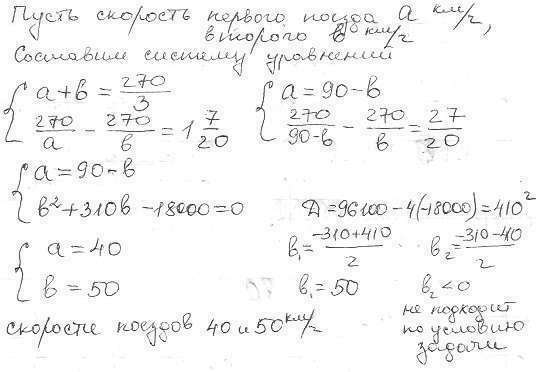 Пусть скорость первого поезда a км/ч,
второго b км/ч
Составим систему уравнений
{ a + b = 270/3
{ 270/a − 270/b = 1 7/20
{ a = 90 − b
{ 270/(90−b) − 270/b = 27/20
{ a = 90 − b
{ b² + 310b − 18000 = 0
D = 96100 − 4(−18000) = 410²
{ a = 40
{ b = 50
b₁ = (−310+410)/2 b₂ = (−310−410)/2
b₁ = 50 b₂ < 0
не подходит
по условию
задачи
скорости поездов 40 и 50 км/ч